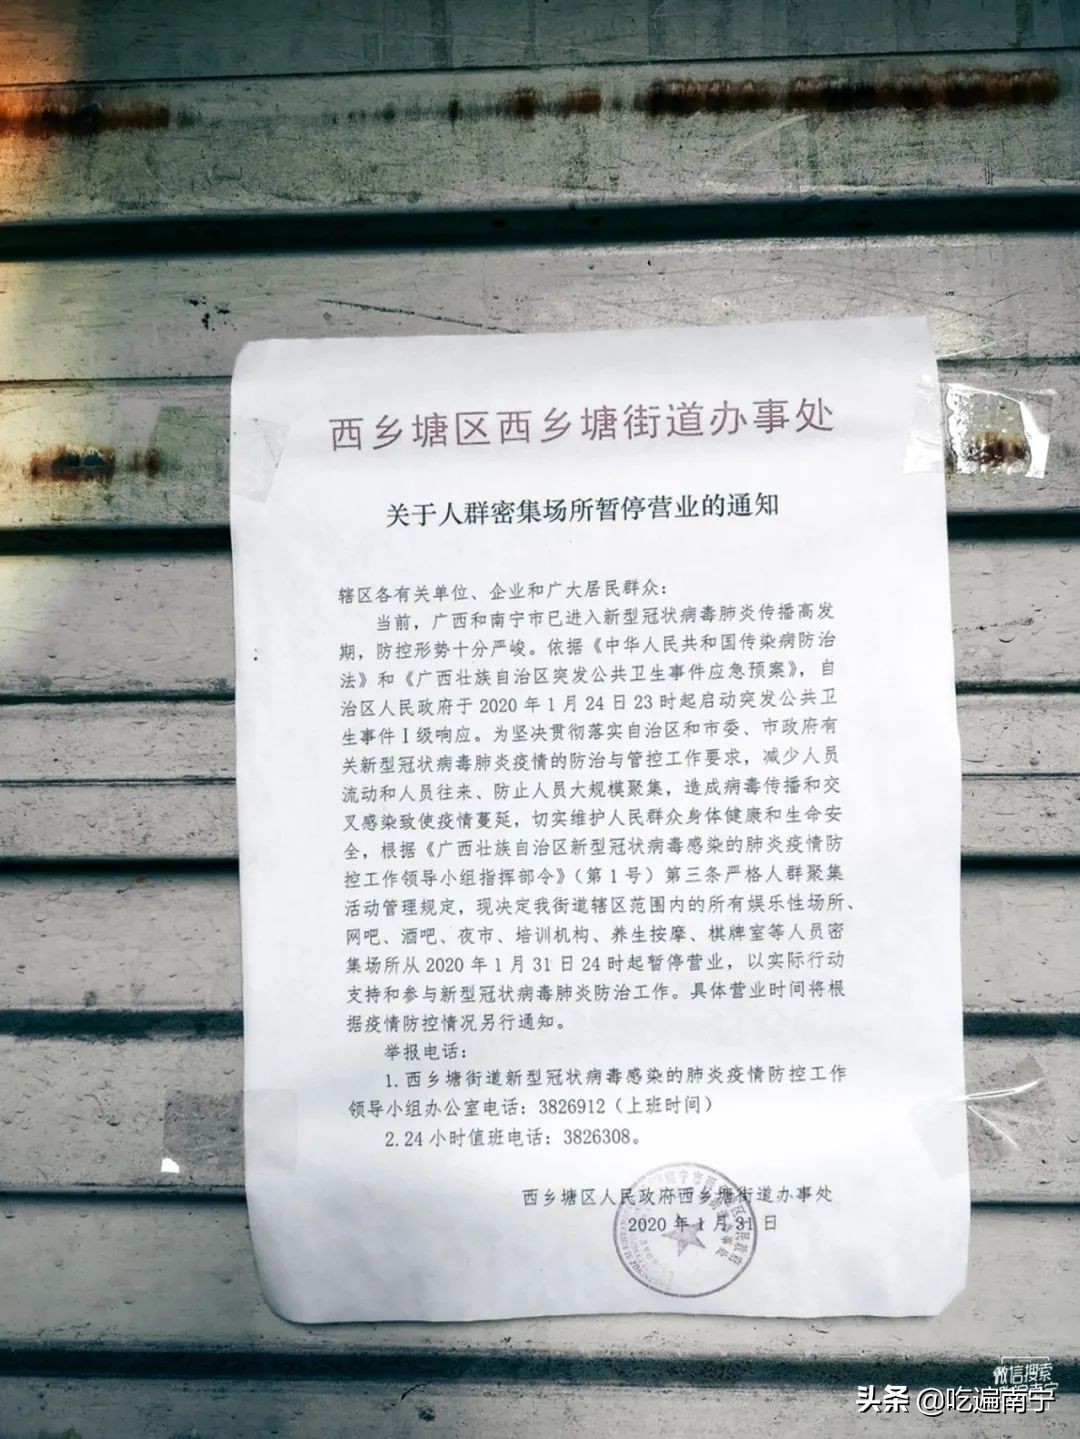 西乡塘区西乡塘街道办事处
关于人群密集场所暂停营业的通知
辖区各有关单位、企业和广大居民群众：
当前，广西和南宁市已进入新型冠状病毒肺炎传播高发
期，防控形势十分严峻。依据《中华人民共和国传染病防治
法》和《广西壮族自治区突发公共卫生事件应急预案》，自
治区人民政府于2020年1月24日23时起启动突发公共卫
生事件Ⅰ级响应。为坚决贯彻落实自治区和市委、市政府有
关新型冠状病毒肺炎疫情的防治与管控工作要求，减少人员
流动和人员往来、防止人员大规模聚集，造成病毒传播和交
叉感染致使疫情蔓延，切实维护人民群众身体健康和生命安
全，根据《广西壮族自治区新型冠状病毒感染的肺炎疫情防
控工作领导小组指挥部令》（第1号）第三条严格人群聚集
活动管理规定，现决定我街道辖区范围内的所有娱乐性场所、
网吧、酒吧、夜市、培训机构、养生按摩、棋牌室等人员密
集场所从2020年1月31日24时起暂停营业，以实际行动
支持和参与新型冠状病毒肺炎防治工作。具体营业时间将根
据疫情防控情况另行通知。
举报电话：
1.西乡塘街道新型冠状病毒感染的肺炎疫情防控工作
领导小组办公室电话：3826912（上班时间）
2.24小时值班电话：3826308。
西乡塘区人民政府西乡塘街道办事处
2020年1月31日
微信搜索
头条 @吃遍南宁